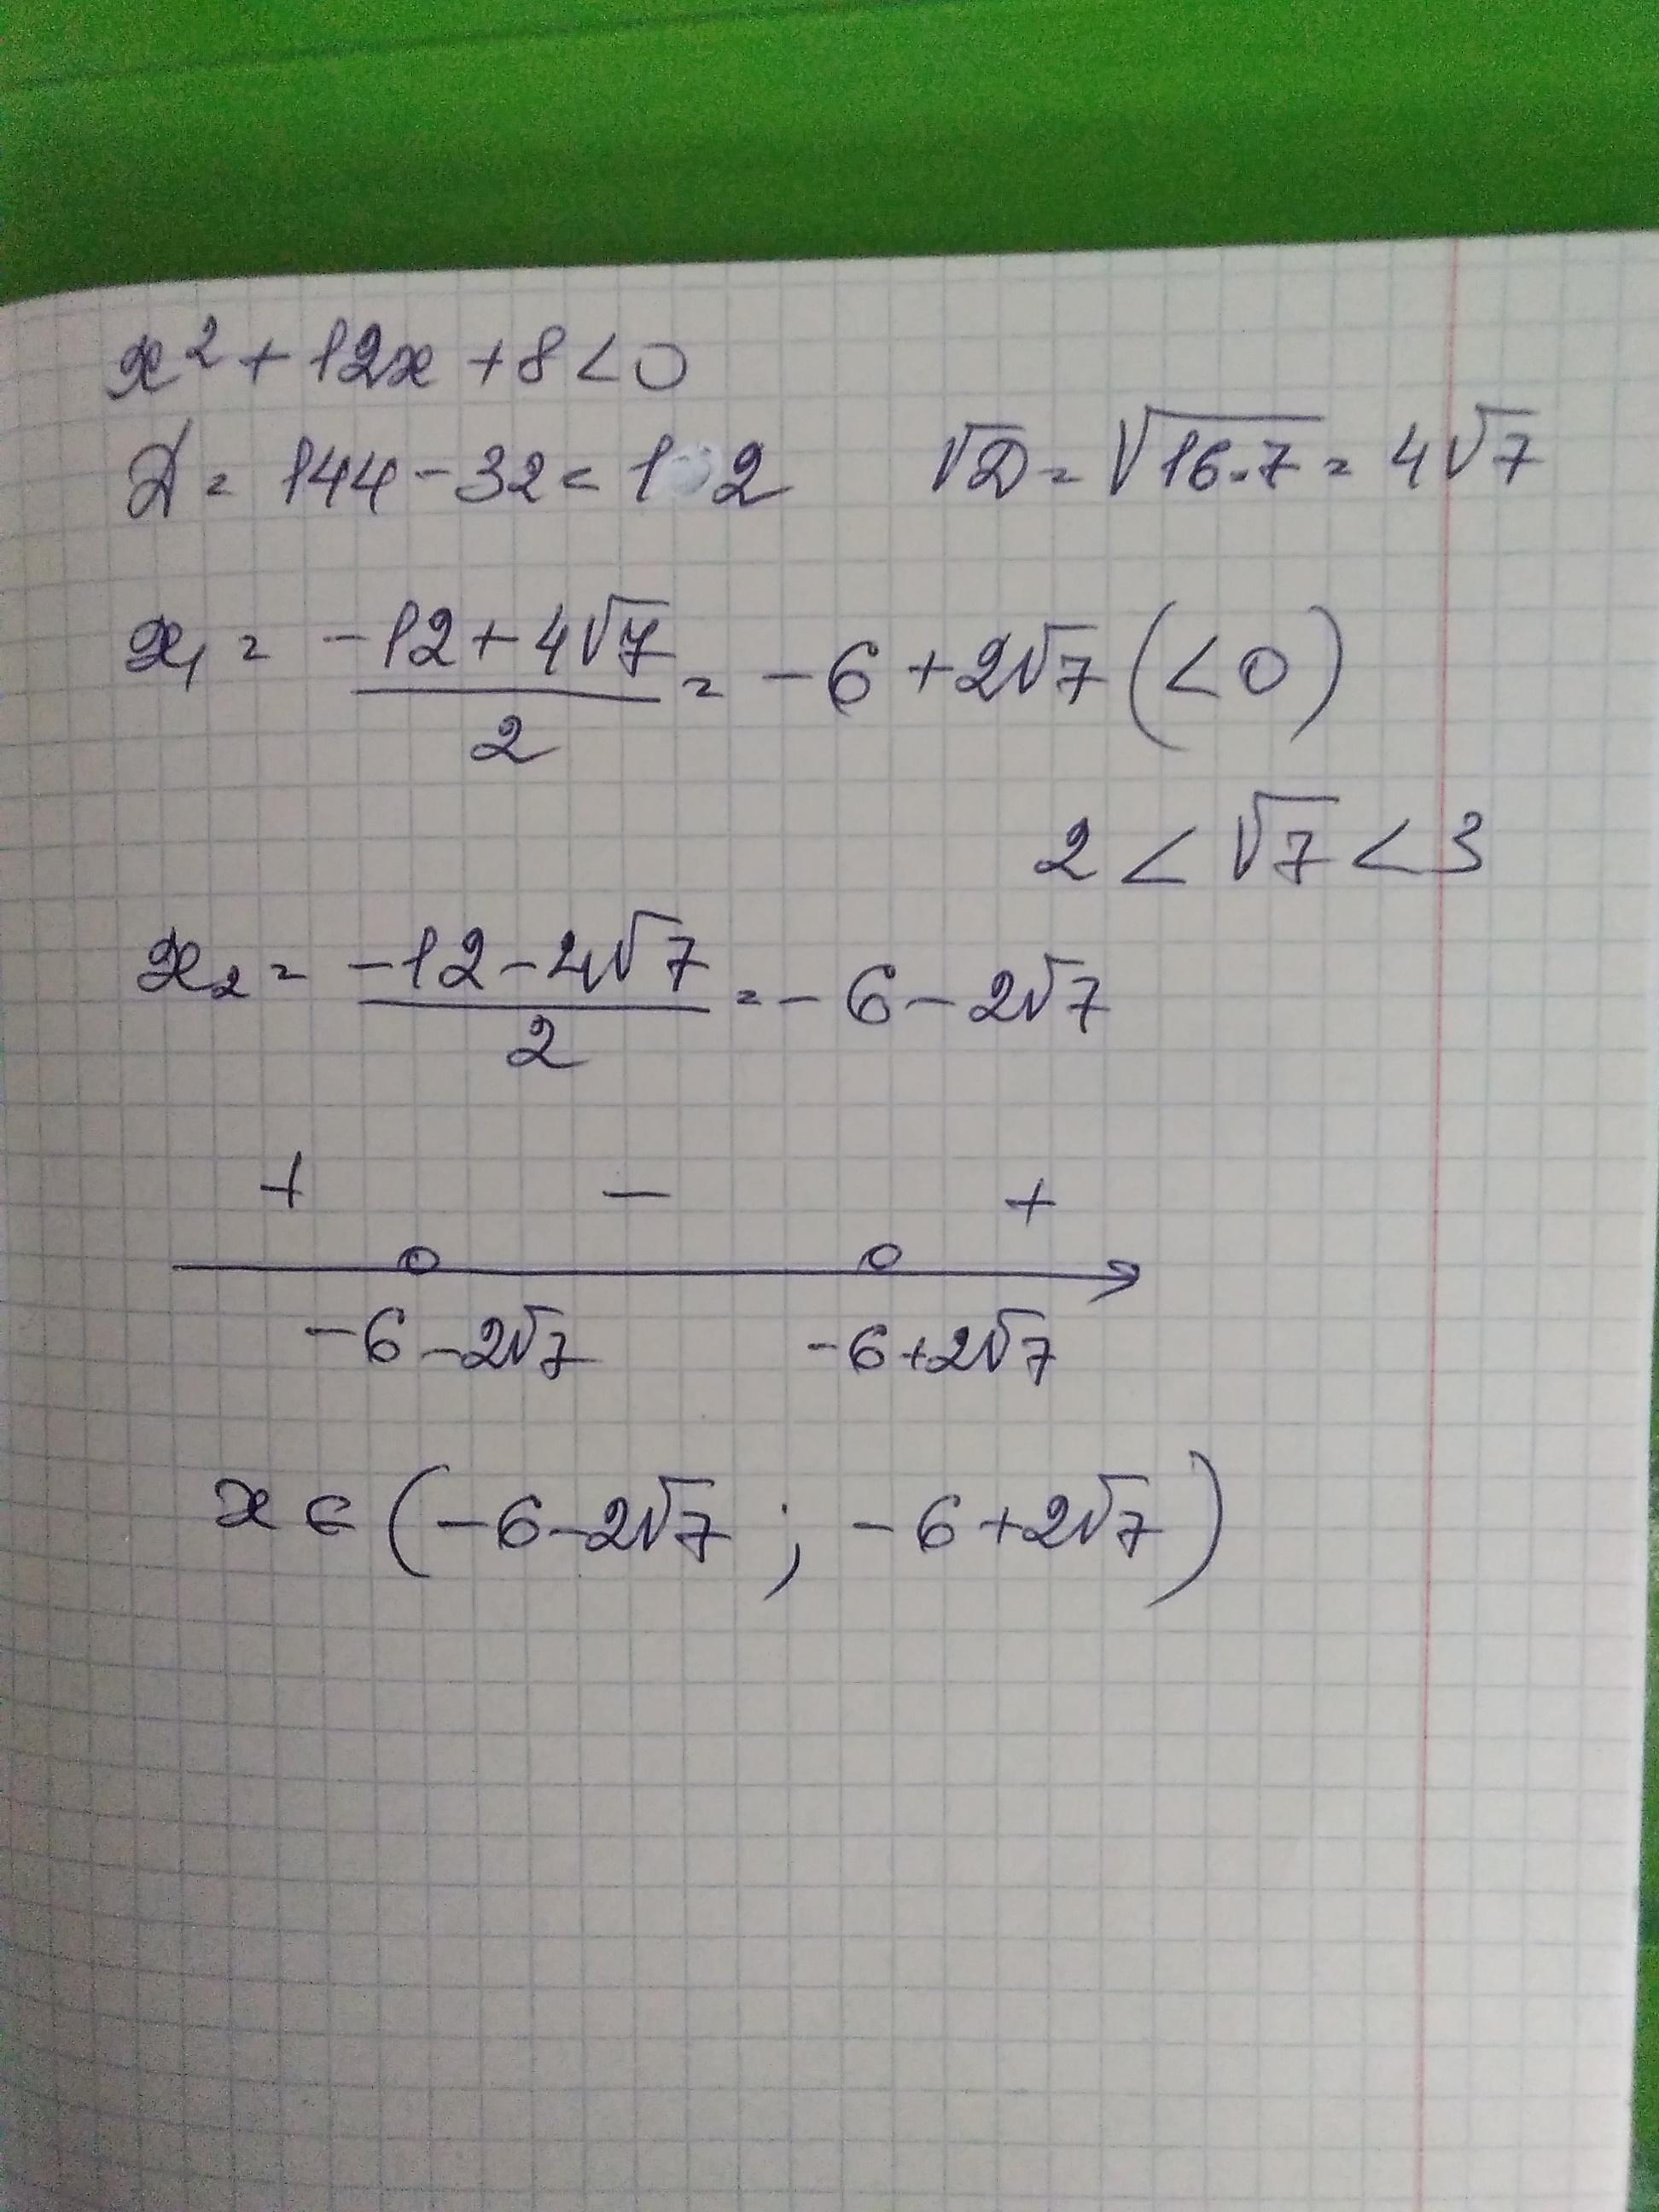 x² + 12x + 8 < 0
D = 144 - 32 = 1 2 √D = √(16·7) = 4√7
x₁ = (-12 + 4√7)/2 = -6 + 2√7 (< 0)
2 < √7 < 3
x₂ = (-12 - 4√7)/2 = -6 - 2√7
+ − +
-6 - 2√7 -6 + 2√7
x ∈ (-6 - 2√7 ; -6 + 2√7)